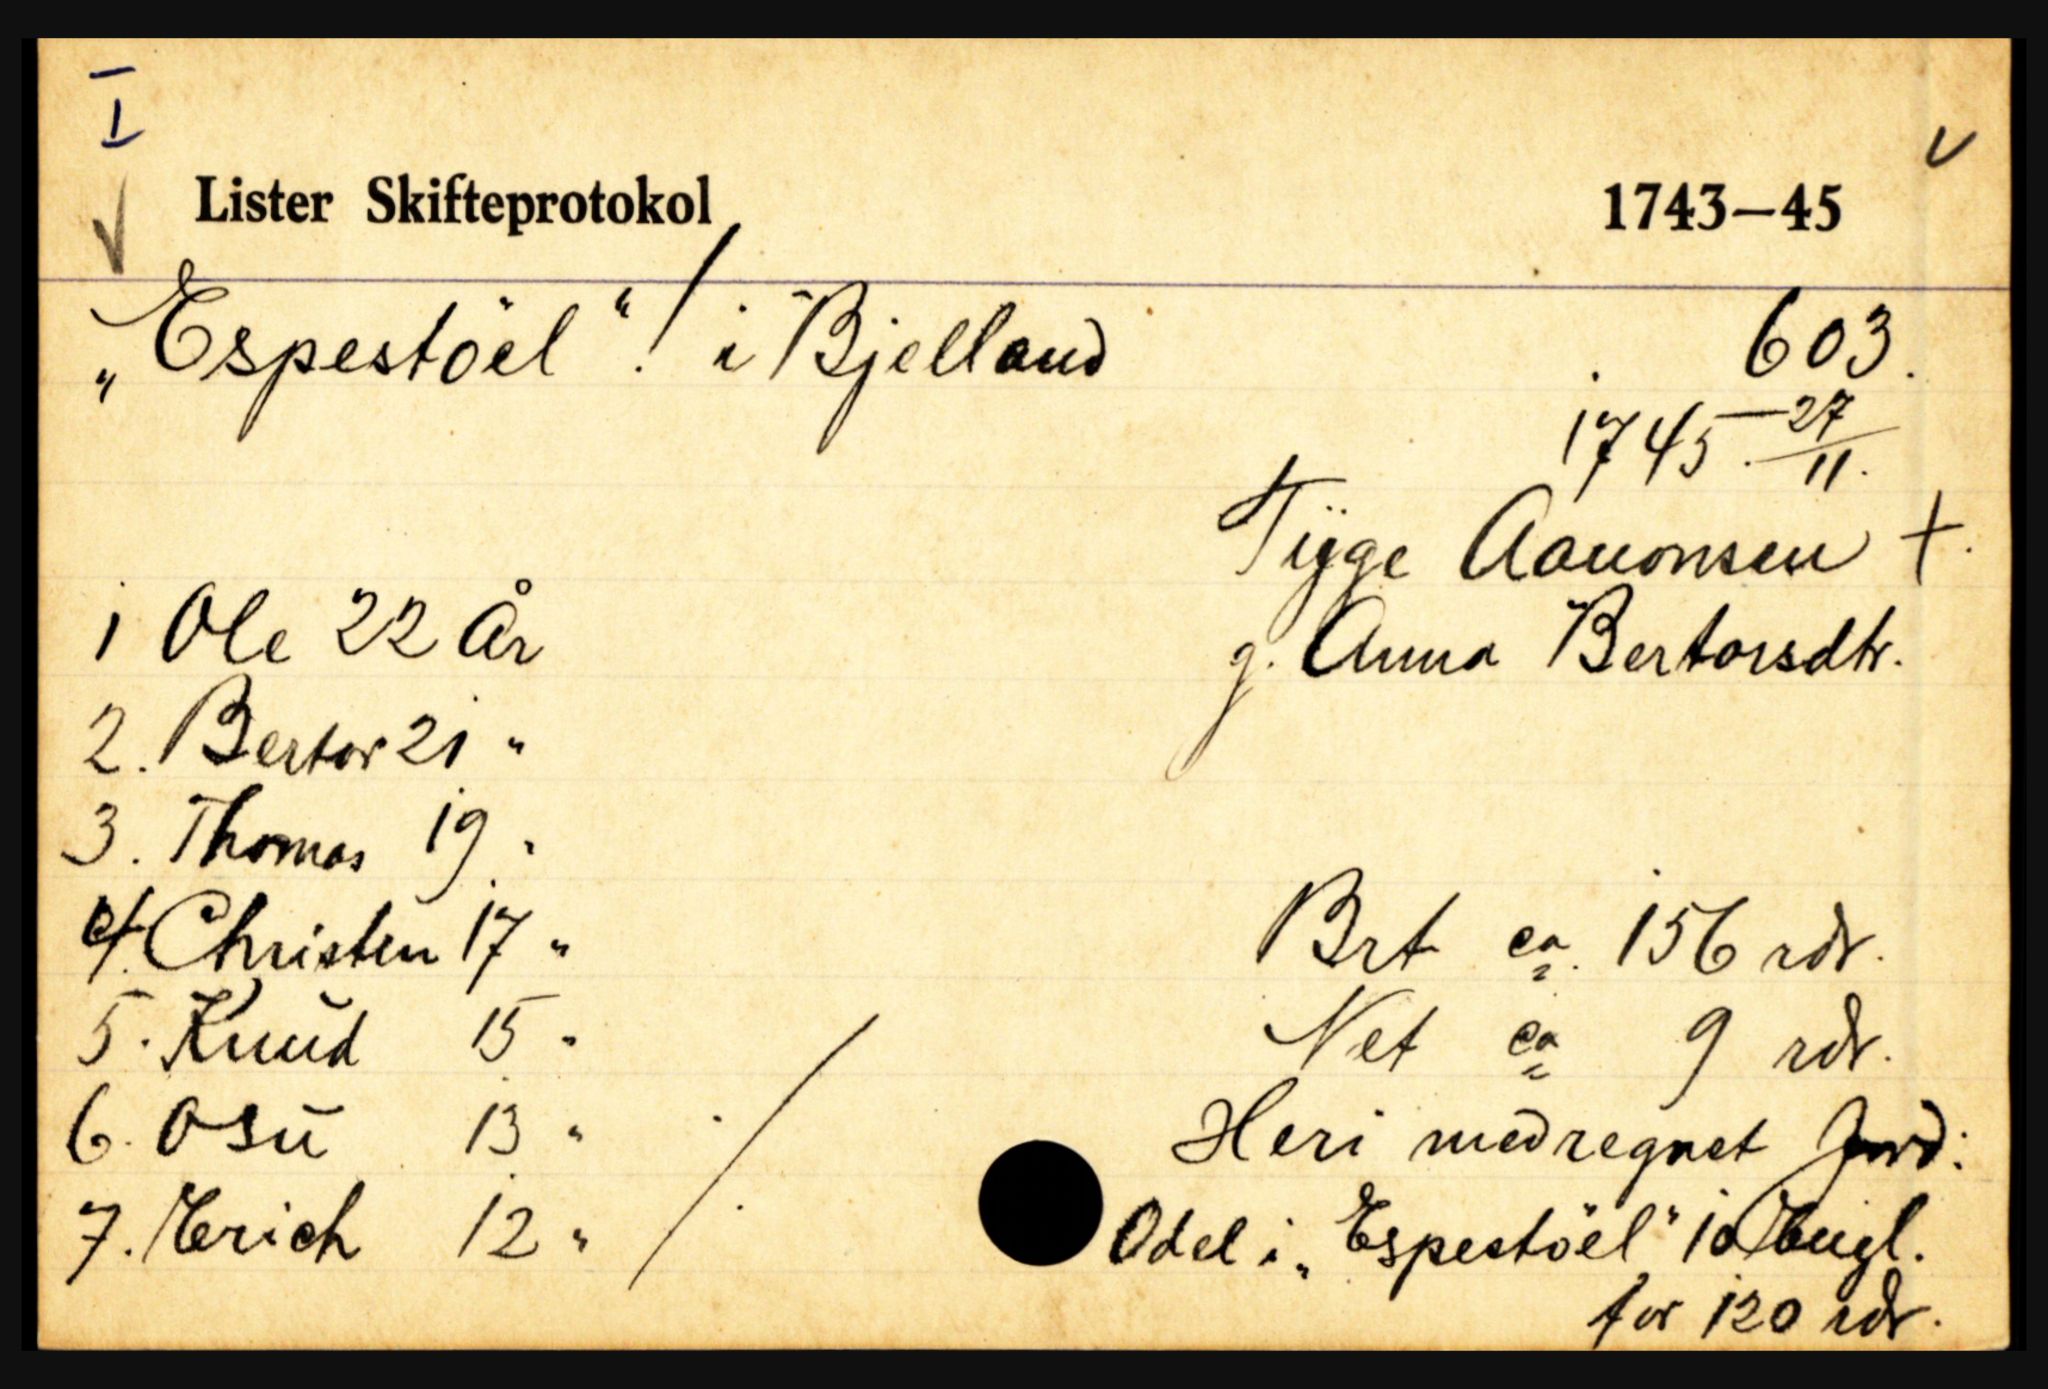 I
Lister Skifteprotokol 1743–45
„Espestöel“! i Bjelland 603.
1745 – 27/11.
Tÿge Aanonsen +.
g. Anna Bertorsdtr.
1 Ole 22 År
2. Bertor 21 "
3. Thomas 19 "
4. Christen 17 "
5. Knud 15 "
6. Osu 13 "
7. Erich 12 "
Brt ca. 156 rdr.
Net ca 9 rdr.
Heri medregnet Jord:
Odel i „Espestöel“ 1 Engl.
for 120 rdr.